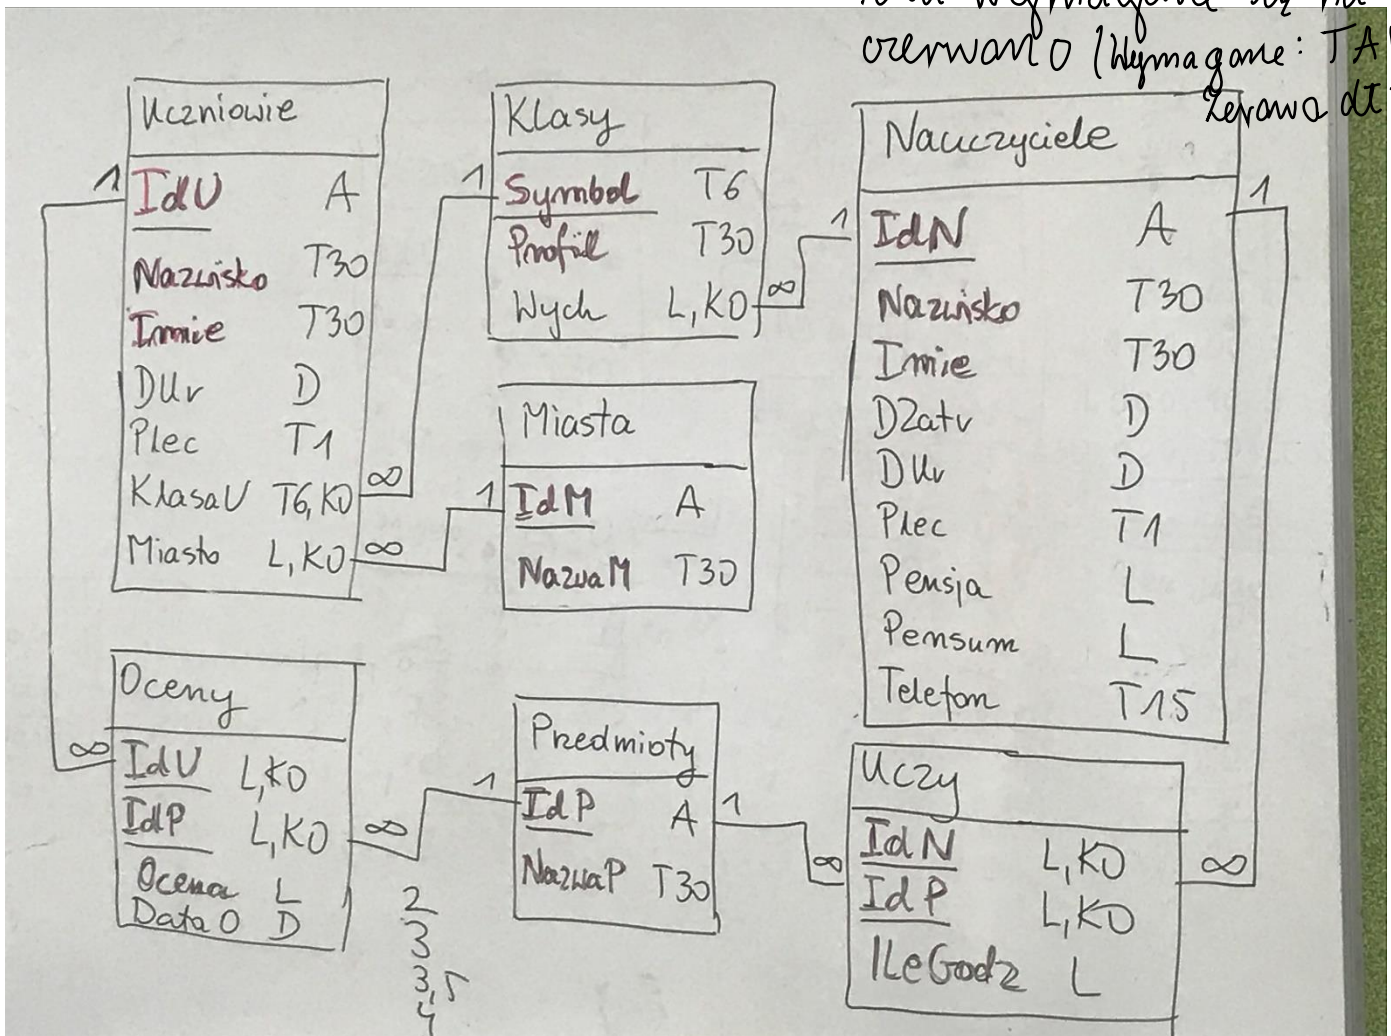 czerwono (Wymagane: TA
Zerowa dł
Uczniowie
1 IdU A
Nazwisko T30
Imie T30
DUr D
Plec T1
KlasaU T6, KO ∞
Miasto L, KO ∞
Klasy
1 Symbol T6
Profil T30
Wych L, KO ∞
Miasta
1 IdM A
NazwaM T30
Nauczyciele
1 IdN A 1
Nazwisko T30
Imie T30
DZatr D
DUr D
Plec T1
Pensja L
Pensum L
Telefon T15
Oceny
∞ IdU L, KO
IdP L, KO ∞
Ocena L
DataO D
2
3
3,5
4
Przedmioty
1 IdP A 1
NazwaP T30
Uczy
IdN L, KO ∞
∞ IdP L, KO
IleGodz L